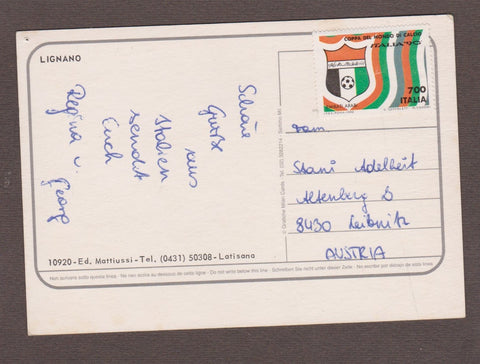 LIGNANO
Schöne
Grüsse
aus
Italien
sendet
Euch
Regina u. Georg
COPPA DEL MONDO DI CALCIO
ITALIA '90
700
ITALIA
Fam.
Stani Adelheit
Altenberg
8430 Leibnitz
AUSTRIA
10920-Ed. Mattiussi-Tel. (0431) 50308-Latisana
Non scrivere sotto questa linea - Ne rien écrire au dessous de cette ligne - Do not write below this line - Schreiben Sie nicht unter dieser Zeile - No escribir por debajo de esta línea